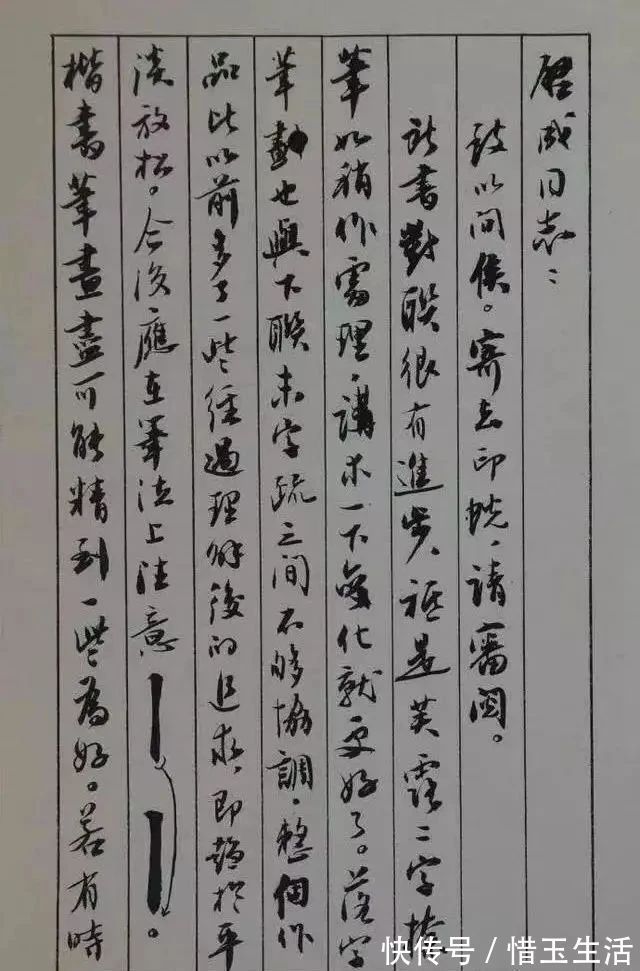 启成同志：
致以问候。寄去印蜕，请審阅。
所書對联很有進步，祗是芙露二字横
筆如稍作處理，講求一下變化就更好了。落字
筆動也與下联末字疏之间不够協調。整個作
品比以前多了一些經過理解後的追求，即趋於平
淡放松。今後，應在筆法上注意。
楷書筆畫盡可能精到一些為好。若有時
快传号 / 惜玉生活